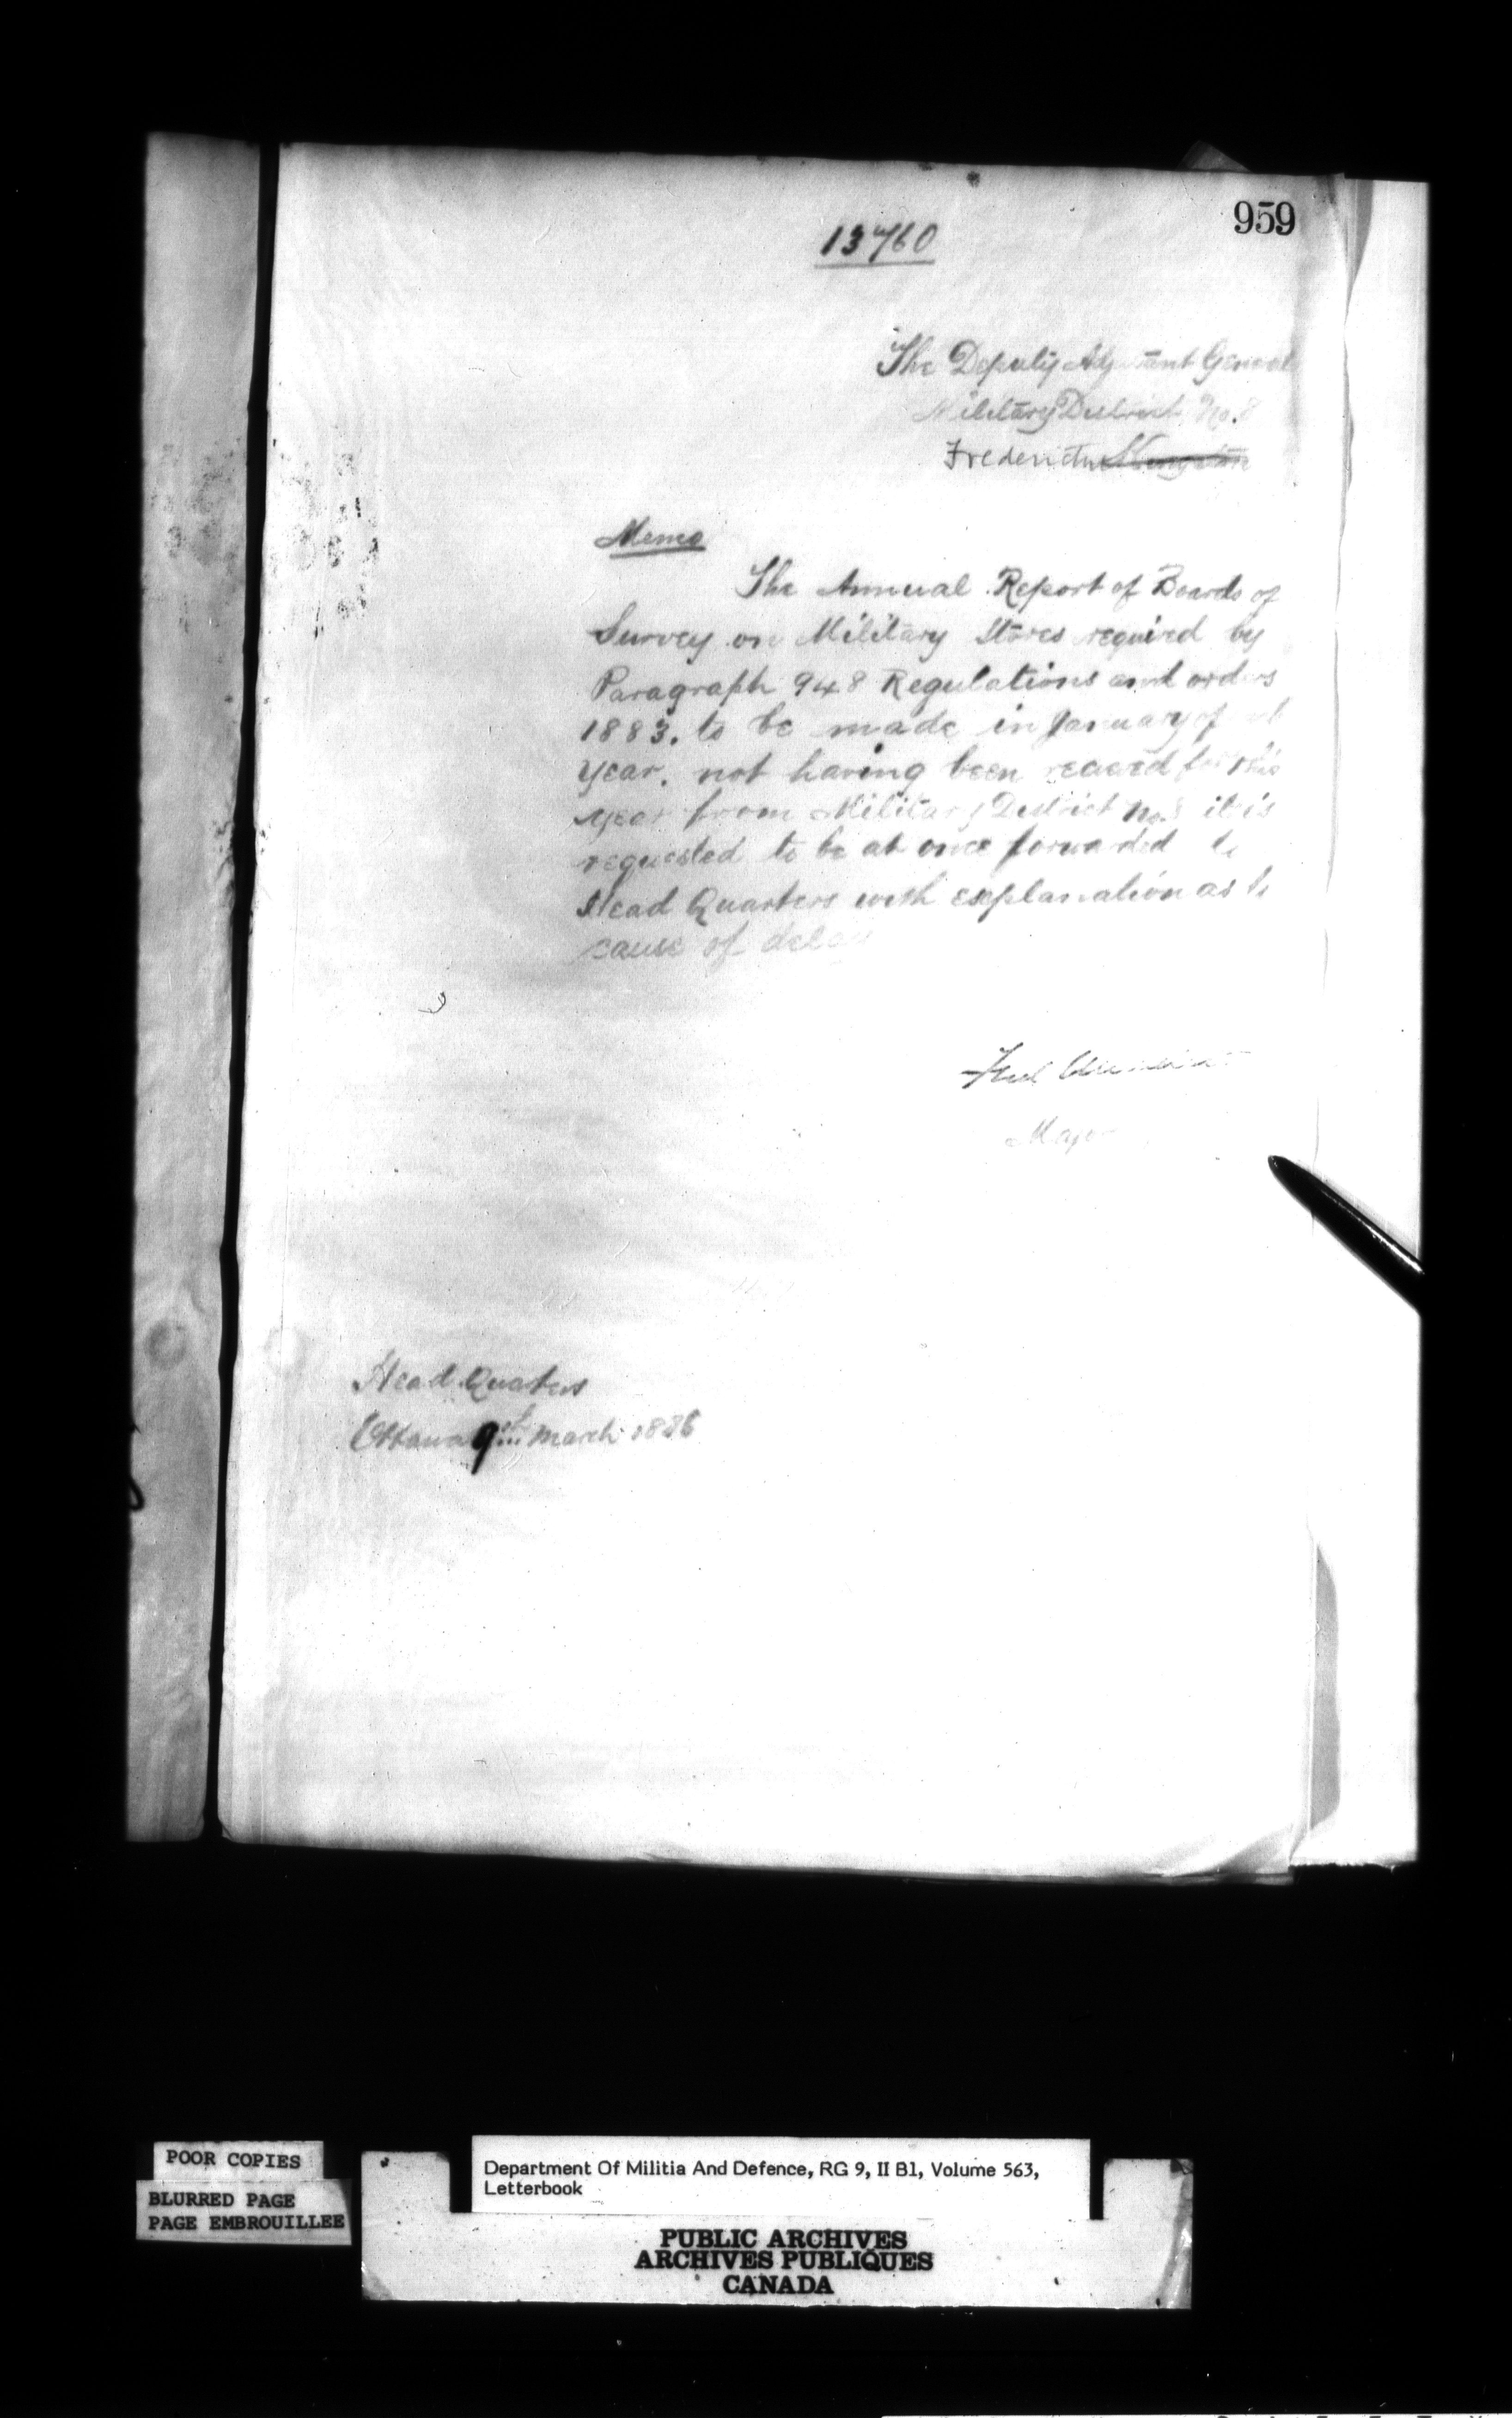 959
13760
The Deputy Adjutant General
Military District No. 8
Fredericton Kingston
Memo
The Annual Report of Boards of
Survey on Military Stores required by
Paragraph 948 Regulations and orders
1883. to be made in January of
Year. not having been received for this
year from Military District No. 8 it is
requested to be at once forwarded to
Head Quarters with explanation as to
cause of delay
Fred
Major
Head Quarters
Ottawa 9th March 1886
POOR COPIES
BLURRED PAGE
PAGE EMBROUILLEE
Department Of Militia And Defence, RG 9, II B1, Volume 563,
Letterbook
PUBLIC ARCHIVES
ARCHIVES PUBLIQUES
CANADA